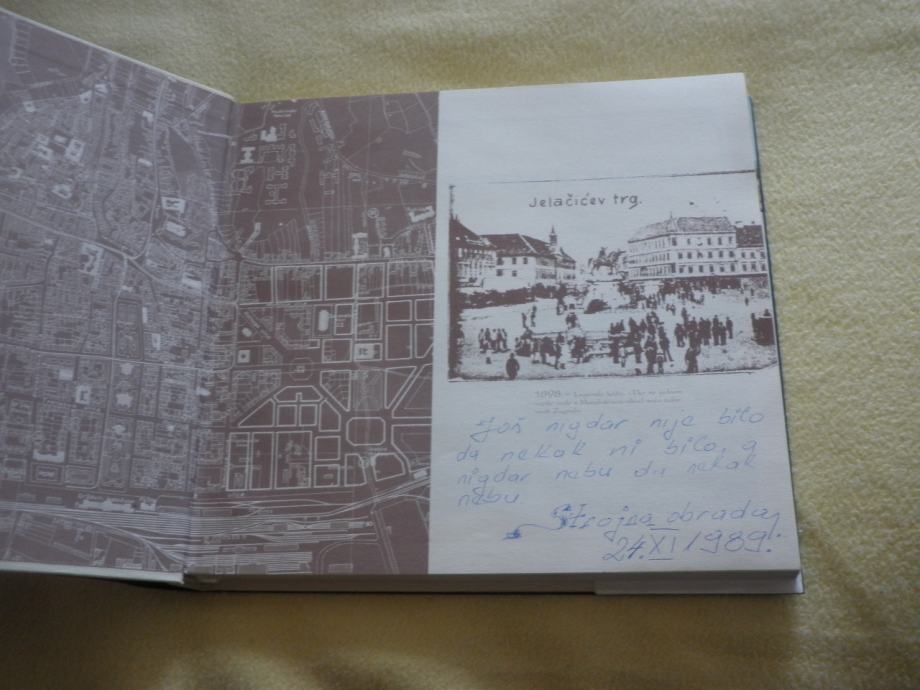 Jelačićev trg.
1898. –
Još nigdar nije bilo
da nekak ni bilo, a
nigdar nebu da nekak
nebu
Strojna obrada,
24. XI 1989.